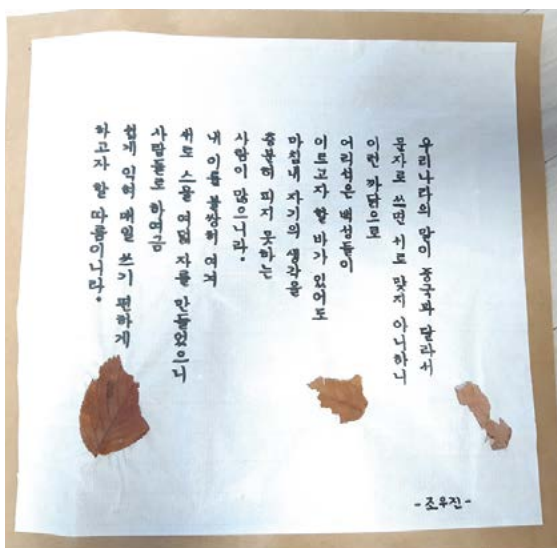 우리나라의 말이 중국과 달라서
문자로 쓰면 서로 맞지 아니하니
이런 까닭으로
어리석은 백성들이
이르고자 할 바가 있어도
마침내 자기의 생각을
충분히 피지 못하는
사람이 많으니라.
내 이를 불쌍히 여겨
새로 스물 여덟 자를 만들었으니
사람들로 하여금
쉽게 익혀 매일 쓰기 편하게
하고자 할 따름이니라.
-조우진-